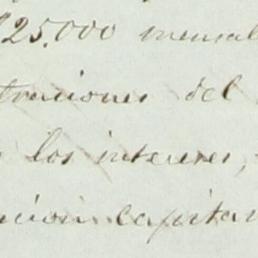 25.000 mensal
traciones del
los intereses,
cion capitan